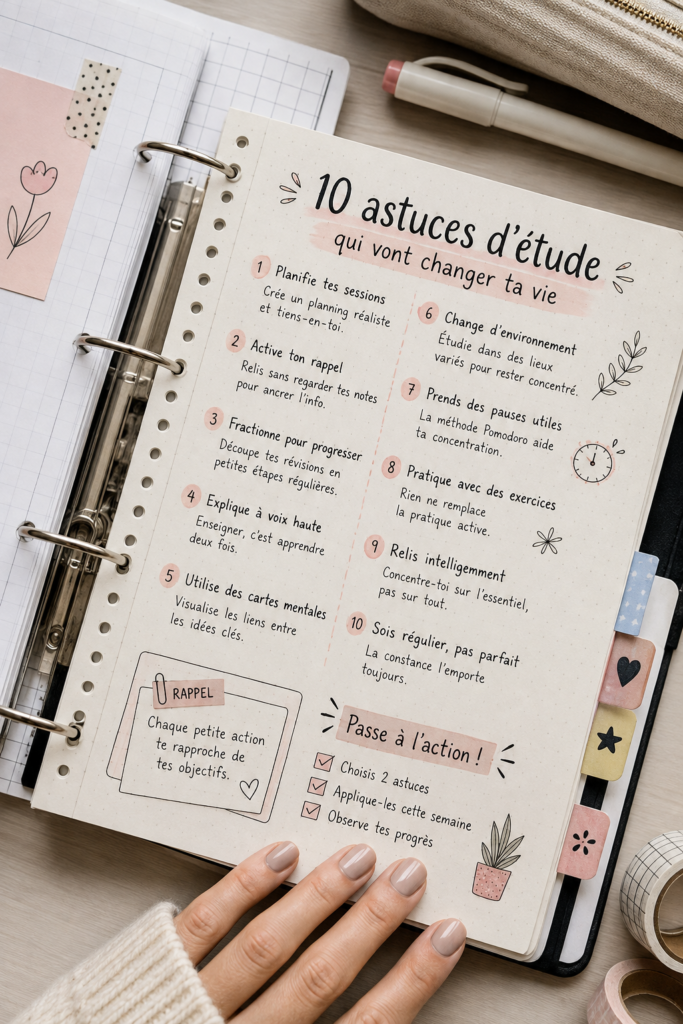 10 astuces d'étude
qui vont changer ta vie
1 Planifie tes sessions
Crée un planning réaliste
et tiens-en-toi.
2 Active ton rappel
Relis sans regarder tes notes
pour ancrer l'info.
3 Fractionne pour progresser
Découpe tes révisions en
petites étapes régulières.
4 Explique à voix haute
Enseigner, c'est apprendre
deux fois.
5 Utilise des cartes mentales
Visualise les liens entre
les idées clés.
6 Change d'environnement
Étudie dans des lieux
variés pour rester concentré.
7 Prends des pauses utiles
La méthode Pomodoro aide
ta concentration.
8 Pratique avec des exercices
Rien ne remplace
la pratique active.
9 Relis intelligemment
Concentre-toi sur l'essentiel,
pas sur tout.
10 Sois régulier, pas parfait
La constance l'emporte
toujours.
RAPPEL
Chaque petite action
te rapproche de
tes objectifs.
Passe à l'action !
Choisis 2 astuces
Applique-les cette semaine
Observe tes progrès